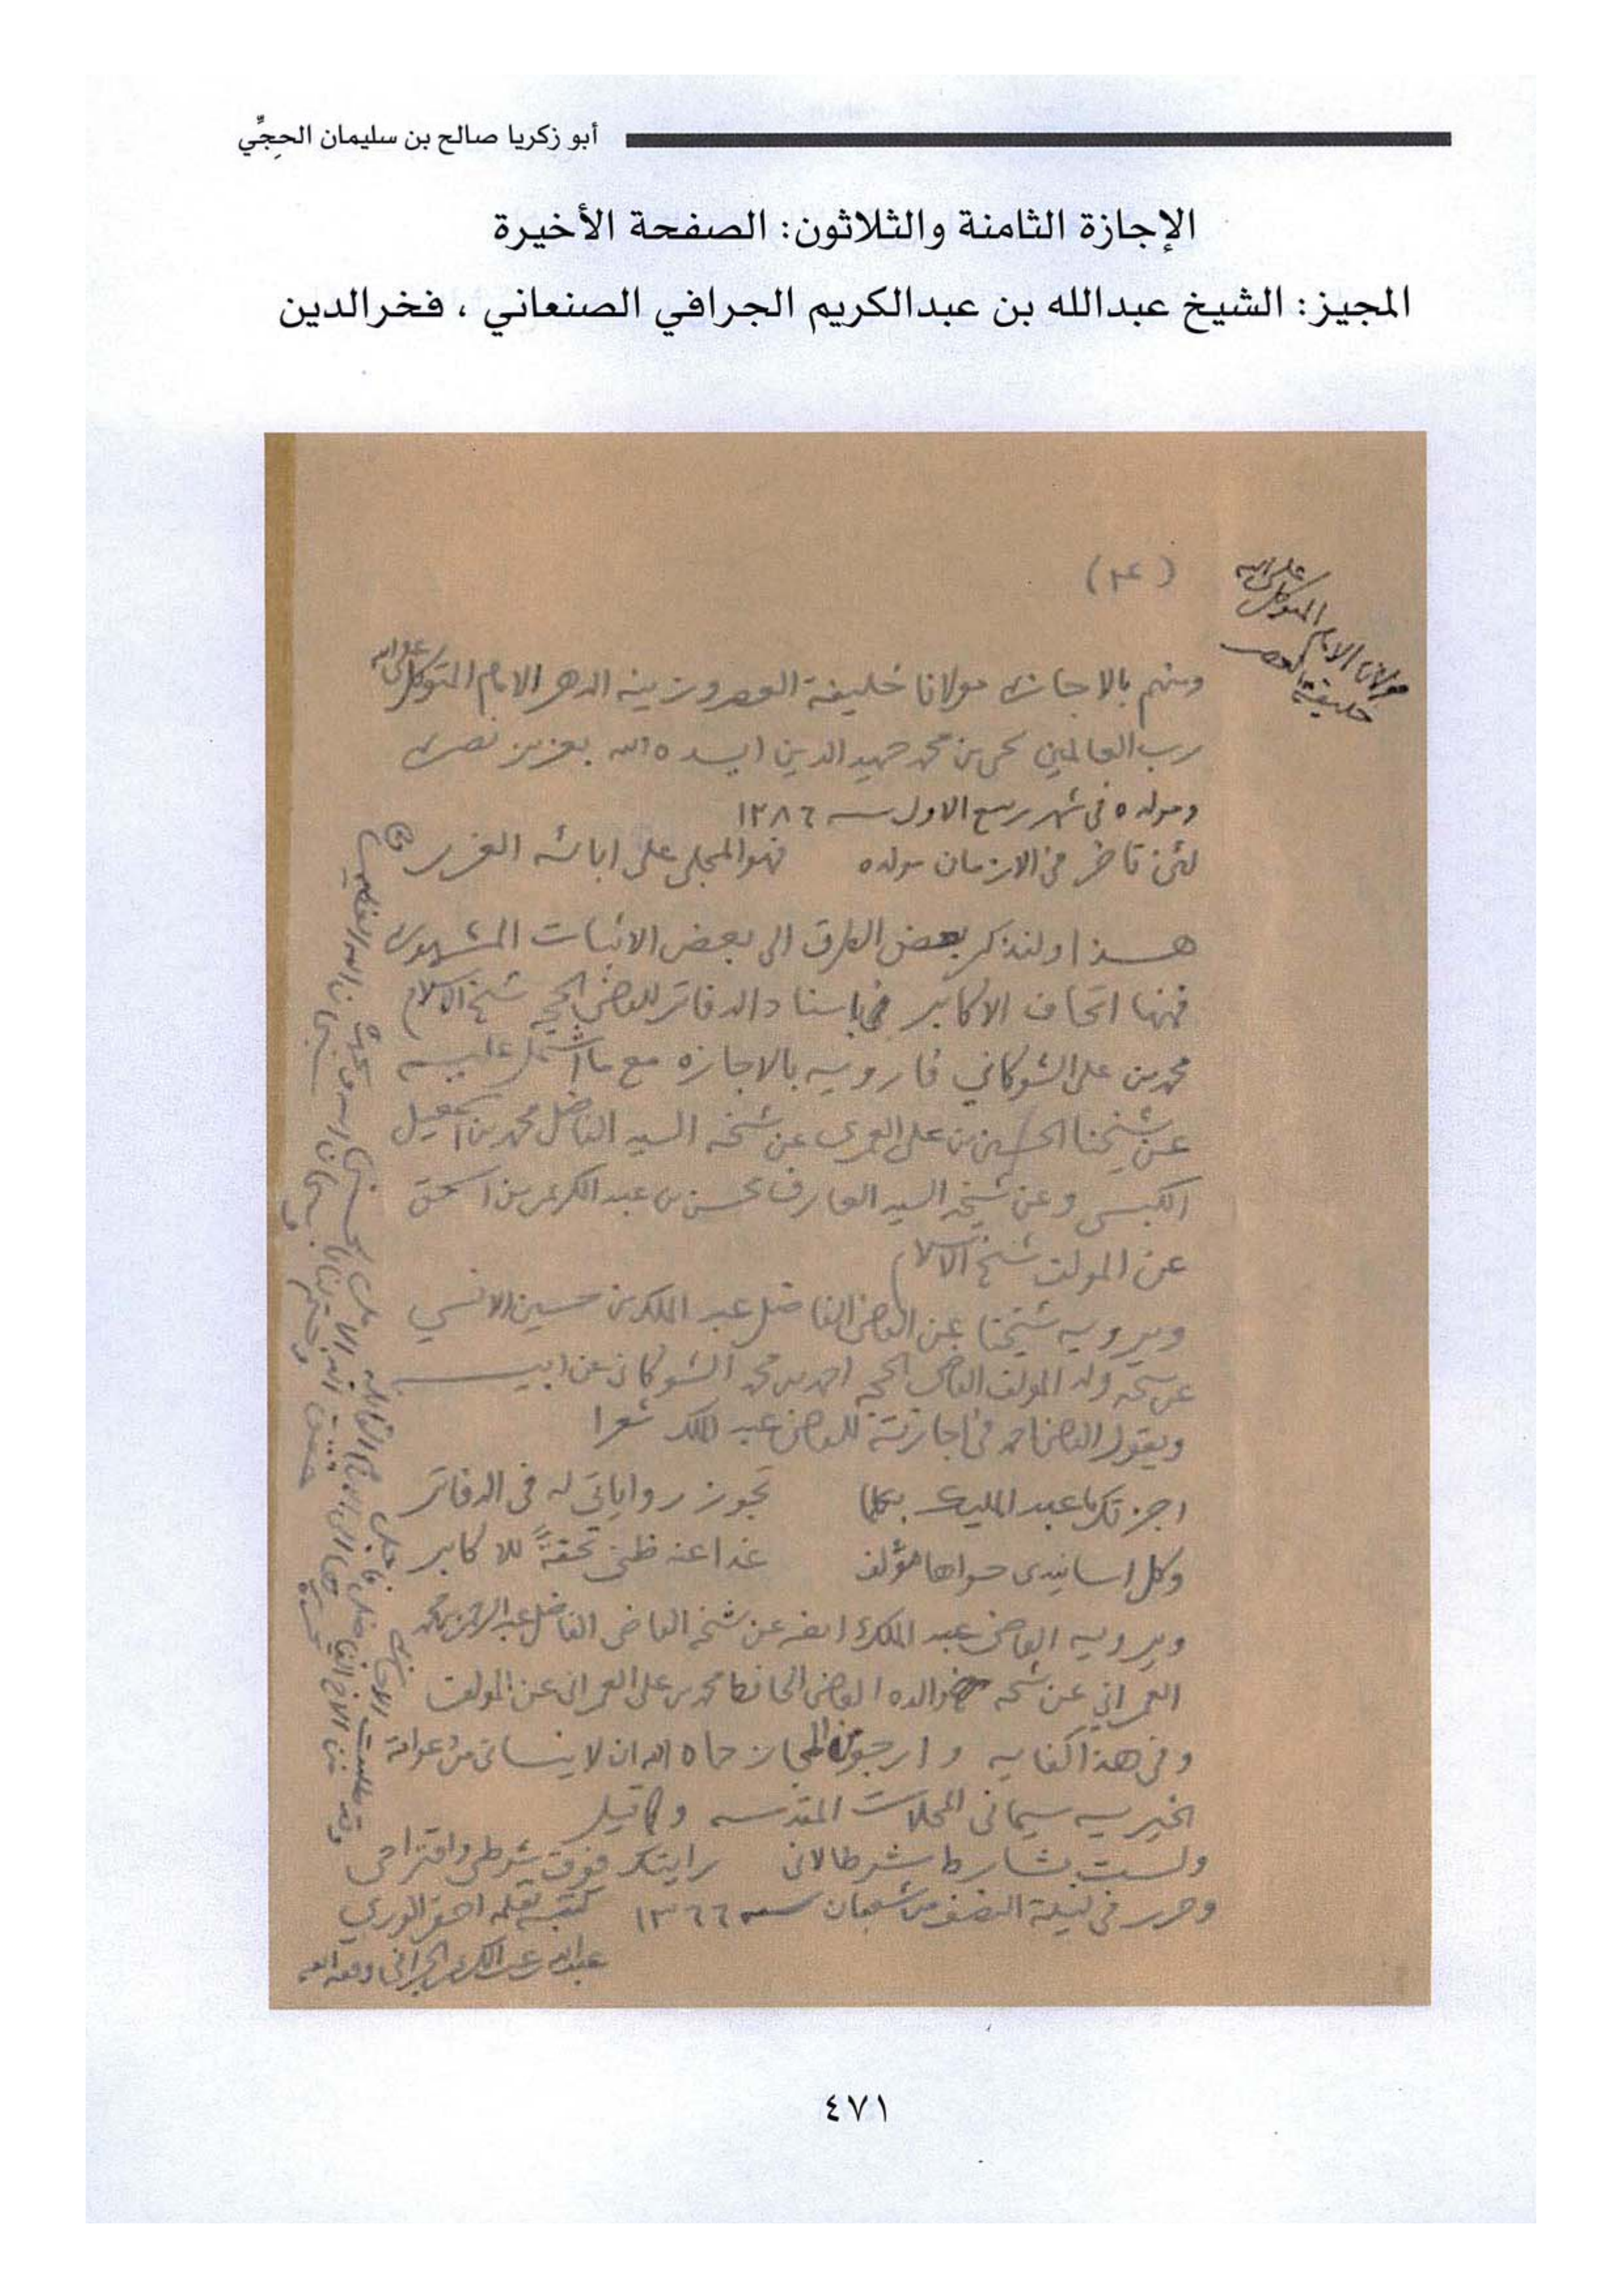 أبو زكريا صالح بن سليمان الحجِّي
الإجازة الثامنة والثلاثون: الصفحة الأخيرة
المجيز: الشيخ عبدالله بن عبدالكريم الجرافي الصنعاني ، فخرالدين
مولانا الامام المتوكل على الله
خليفة العصر
ومنهم بالاجازة مولانا خليفة العصر وزينة الدهر الامام المتوكل على الله
رب العالمين يحيى بن محمد حميد الدين ايده الله بعزيز نصره
ومولده في شهر ربيع الاول سنة ١٢٨٦
لئن تأخر في الازمان مولده فهو المجلي على ابائه الغرر
هذا ولنذكر بعض الطرق الى بعض الاثبات المشهورة
فمنها اتحاف الاكابر باسناد الدفاتر للقاضي الحجة شيخ الاسلام
محمد بن علي الشوكاني فارويه بالاجازه مع ما اشتمل عليه
عن شيخنا الحسين بن علي العمري عن شيخه السيد الفاضل محمد بن اسمعيل
الكبسي وعن شيخه السيد العارف محسن بن عبد الكريم بن اسحق
عن المولف شيخ الاسلام
ويرويه شيخنا عن القاضي الفاضل عبد الملك بن حسين الانسي
عن شيخه ولد المولف القاضي الحجة احمد بن محمد الشوكاني عن ابيه
ويقول القاضي احمد في اجازته للقاضي عبد الملك شعرا
اجزتك يا عبد المليك بكلما تجوز رواياتي له في الدفاتر
وكل اسانيدي حواها مؤلف غدا عنه ظني تحفةً للاكابر
ويرويه القاضي عبد الملك ايضه عن شيخه القاضي الفاضل عبد الرحمن بن محمد
العمراني عن شيخه والده القاضي الحافظ محمد بن علي العمراني عن المولف
وفي هذا كفايه وارجو من المجاز حماه الله ان لا ينساني من دعواته
الخيريه سيما في المحلات المقدسه وكما قيل
ولست بشارط شرطا لاني رايتك فوق شرطي واقتراحي
وحرر في ليلة النصف من شعبان سنه ١٣٦٦ كتبه بقلمه احقر الورى
عبدالله بن عبد الكريم الجرافي وفقه الله
٤٧١